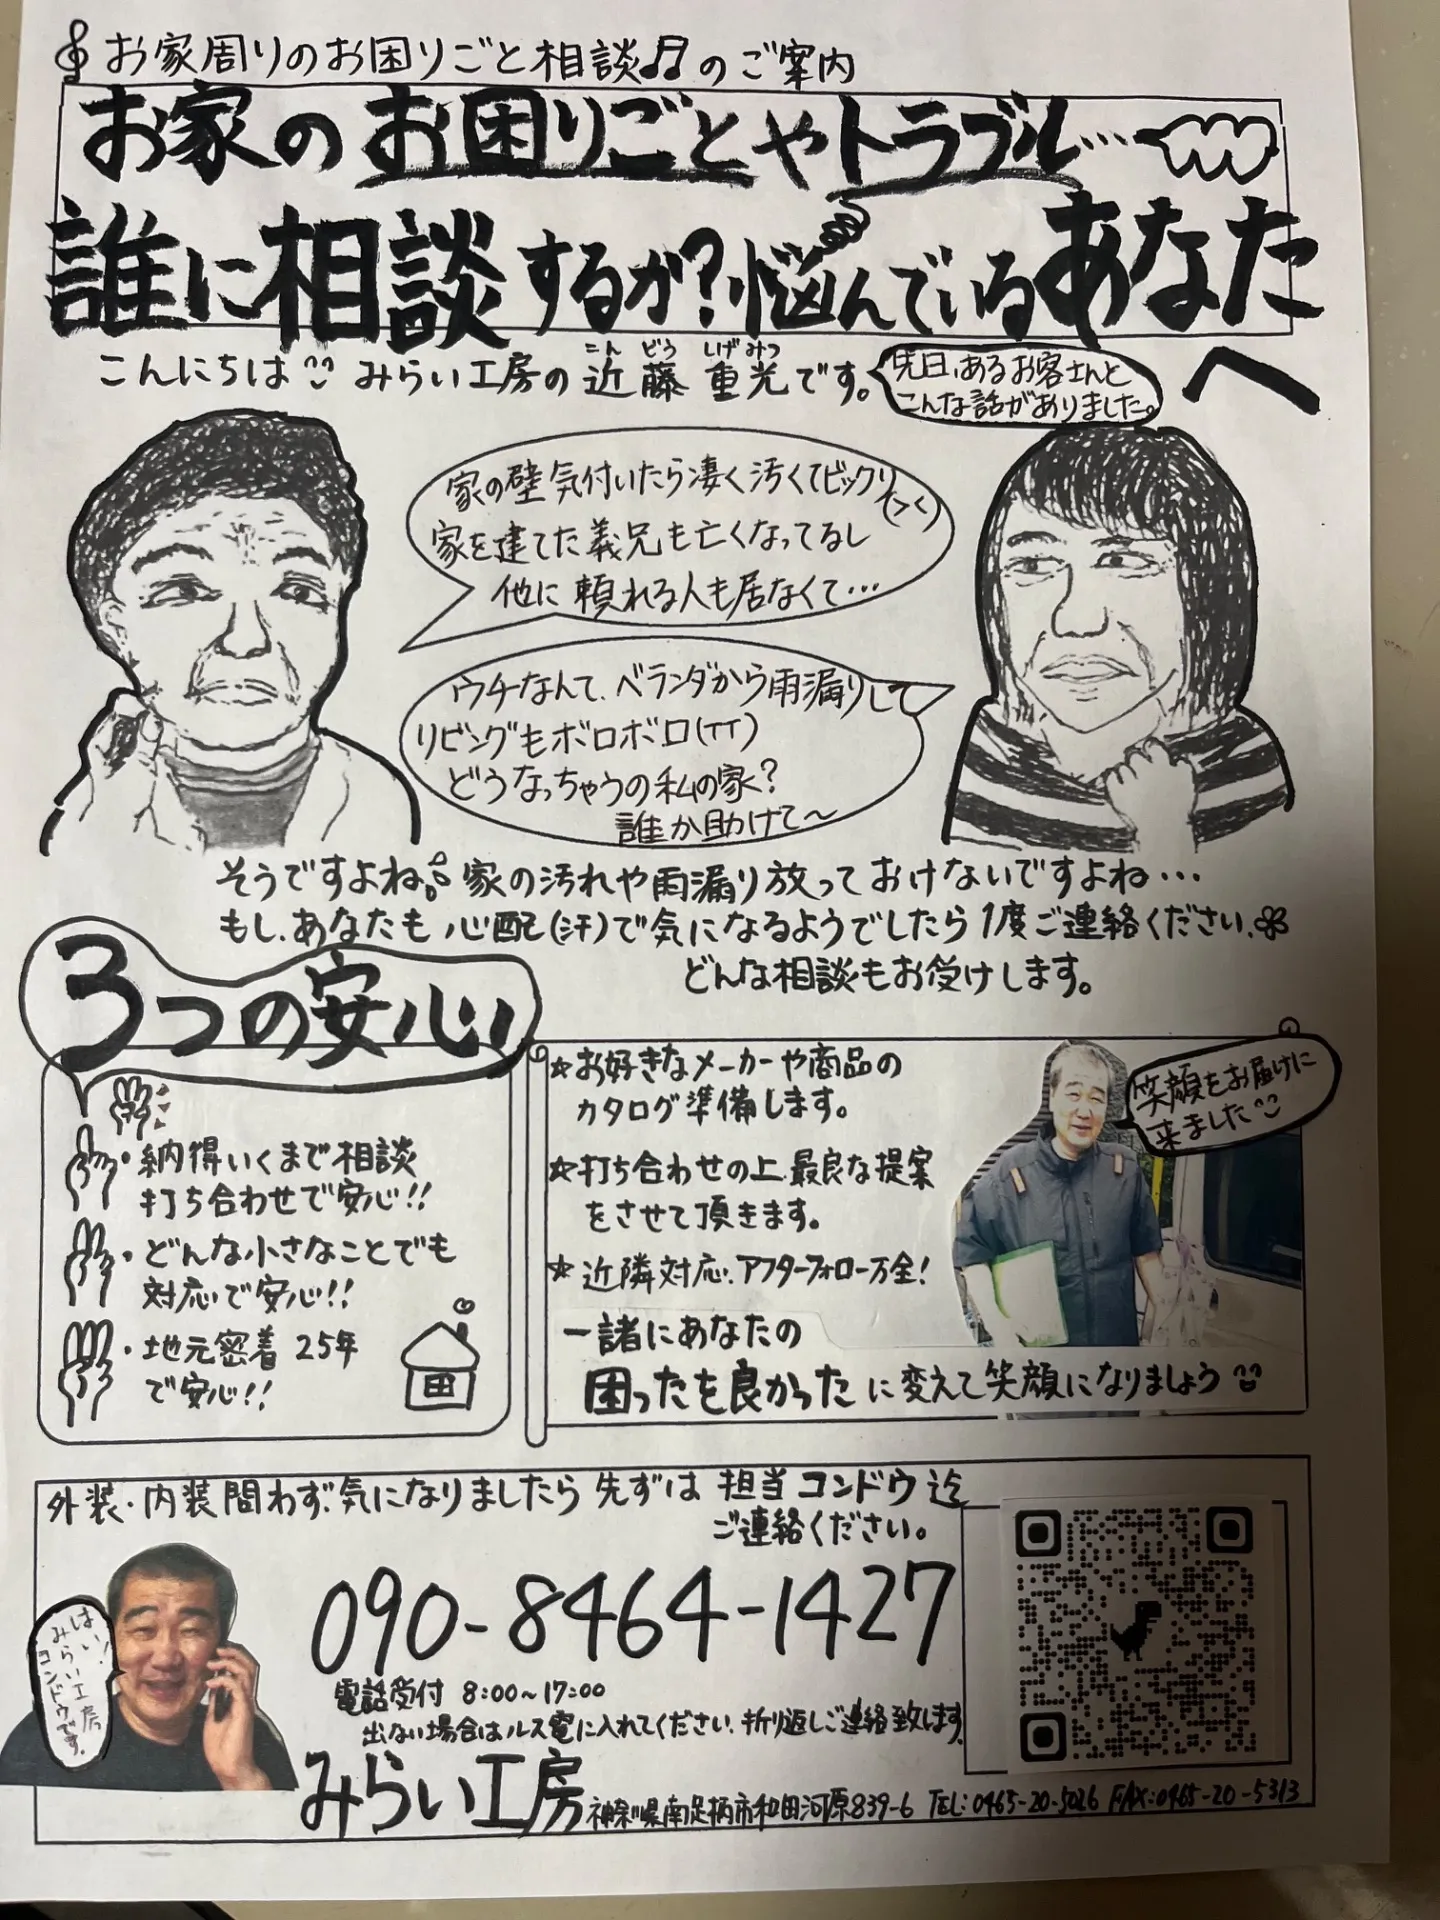 お家周りのお困りごと相談♫のご案内
お家のお困りごとやトラブル…
誰に相談するか?悩んでいるあなたへ
こんにちは みらい工房の近藤重光です。
こんどう しげみつ
先日、あるお客さんと
こんな話がありました。
家の壁気付いたら凄く汚くてビックリ
(つく)
家を建てた義兄も亡くなってるし
他に頼れる人も居なくて…
ウチなんて、ベランダから雨漏りして
リビングもボロボロ(TT)
どうなっちゃうの私の家?
誰か助けて〜
そうですよね。家の汚れや雨漏り放っておけないですよね…
もし、あなたも心配(汗)で気になるようでしたら1度ご連絡ください。
どんな相談もお受けします。
3つの安心
・納得いくまで相談
打ち合わせで安心!!
・どんな小さなことでも
対応で安心!!
・地元密着 25年
で安心!!
☆お好きなメーカーや商品の
カタログ準備します。
☆打ち合わせの上、最良な提案
をさせて頂きます。
☆近隣対応、アフターフォロー万全!
一諸にあなたの
困ったを良かったに変えて笑顔になりましょう
笑顔をお届けに
来ました
外装・内装問わず、気になりましたら先ずは担当コンドウ迄
ご連絡ください。
はい!
みらい工房
コンドウです。
090-8464-1427
電話受付 8:00~17:00
出ない場合はルス電に入れてください。折り返しご連絡致します。
みらい工房 神奈川県南足柄市和田河原839-6 TEL:0465-20-5026 FAX:0465-20-5313